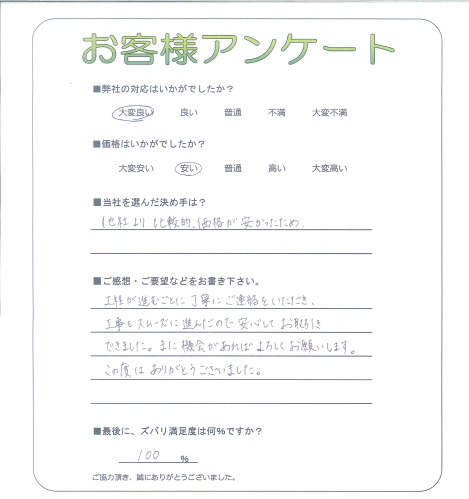 お客様アンケート
■弊社の対応はいかがでしたか？
大変良い 良い 普通 不満 大変不満
■価格はいかがでしたか？
大変安い 安い 普通 高い 大変高い
■当社を選んだ決め手は？
他社より比較的、価格が安かったため、
■ご感想・ご要望などをお書き下さい。
工程が進むごとに丁寧にご連絡をいただき、
工事もスムーズに進んだので安心してお取引き
できました。また機会があればよろしくお願いします。
この度はありがとうございました。
■最後に、ズバリ満足度は何%ですか？
100 %
ご協力頂き、誠にありがとうございました。